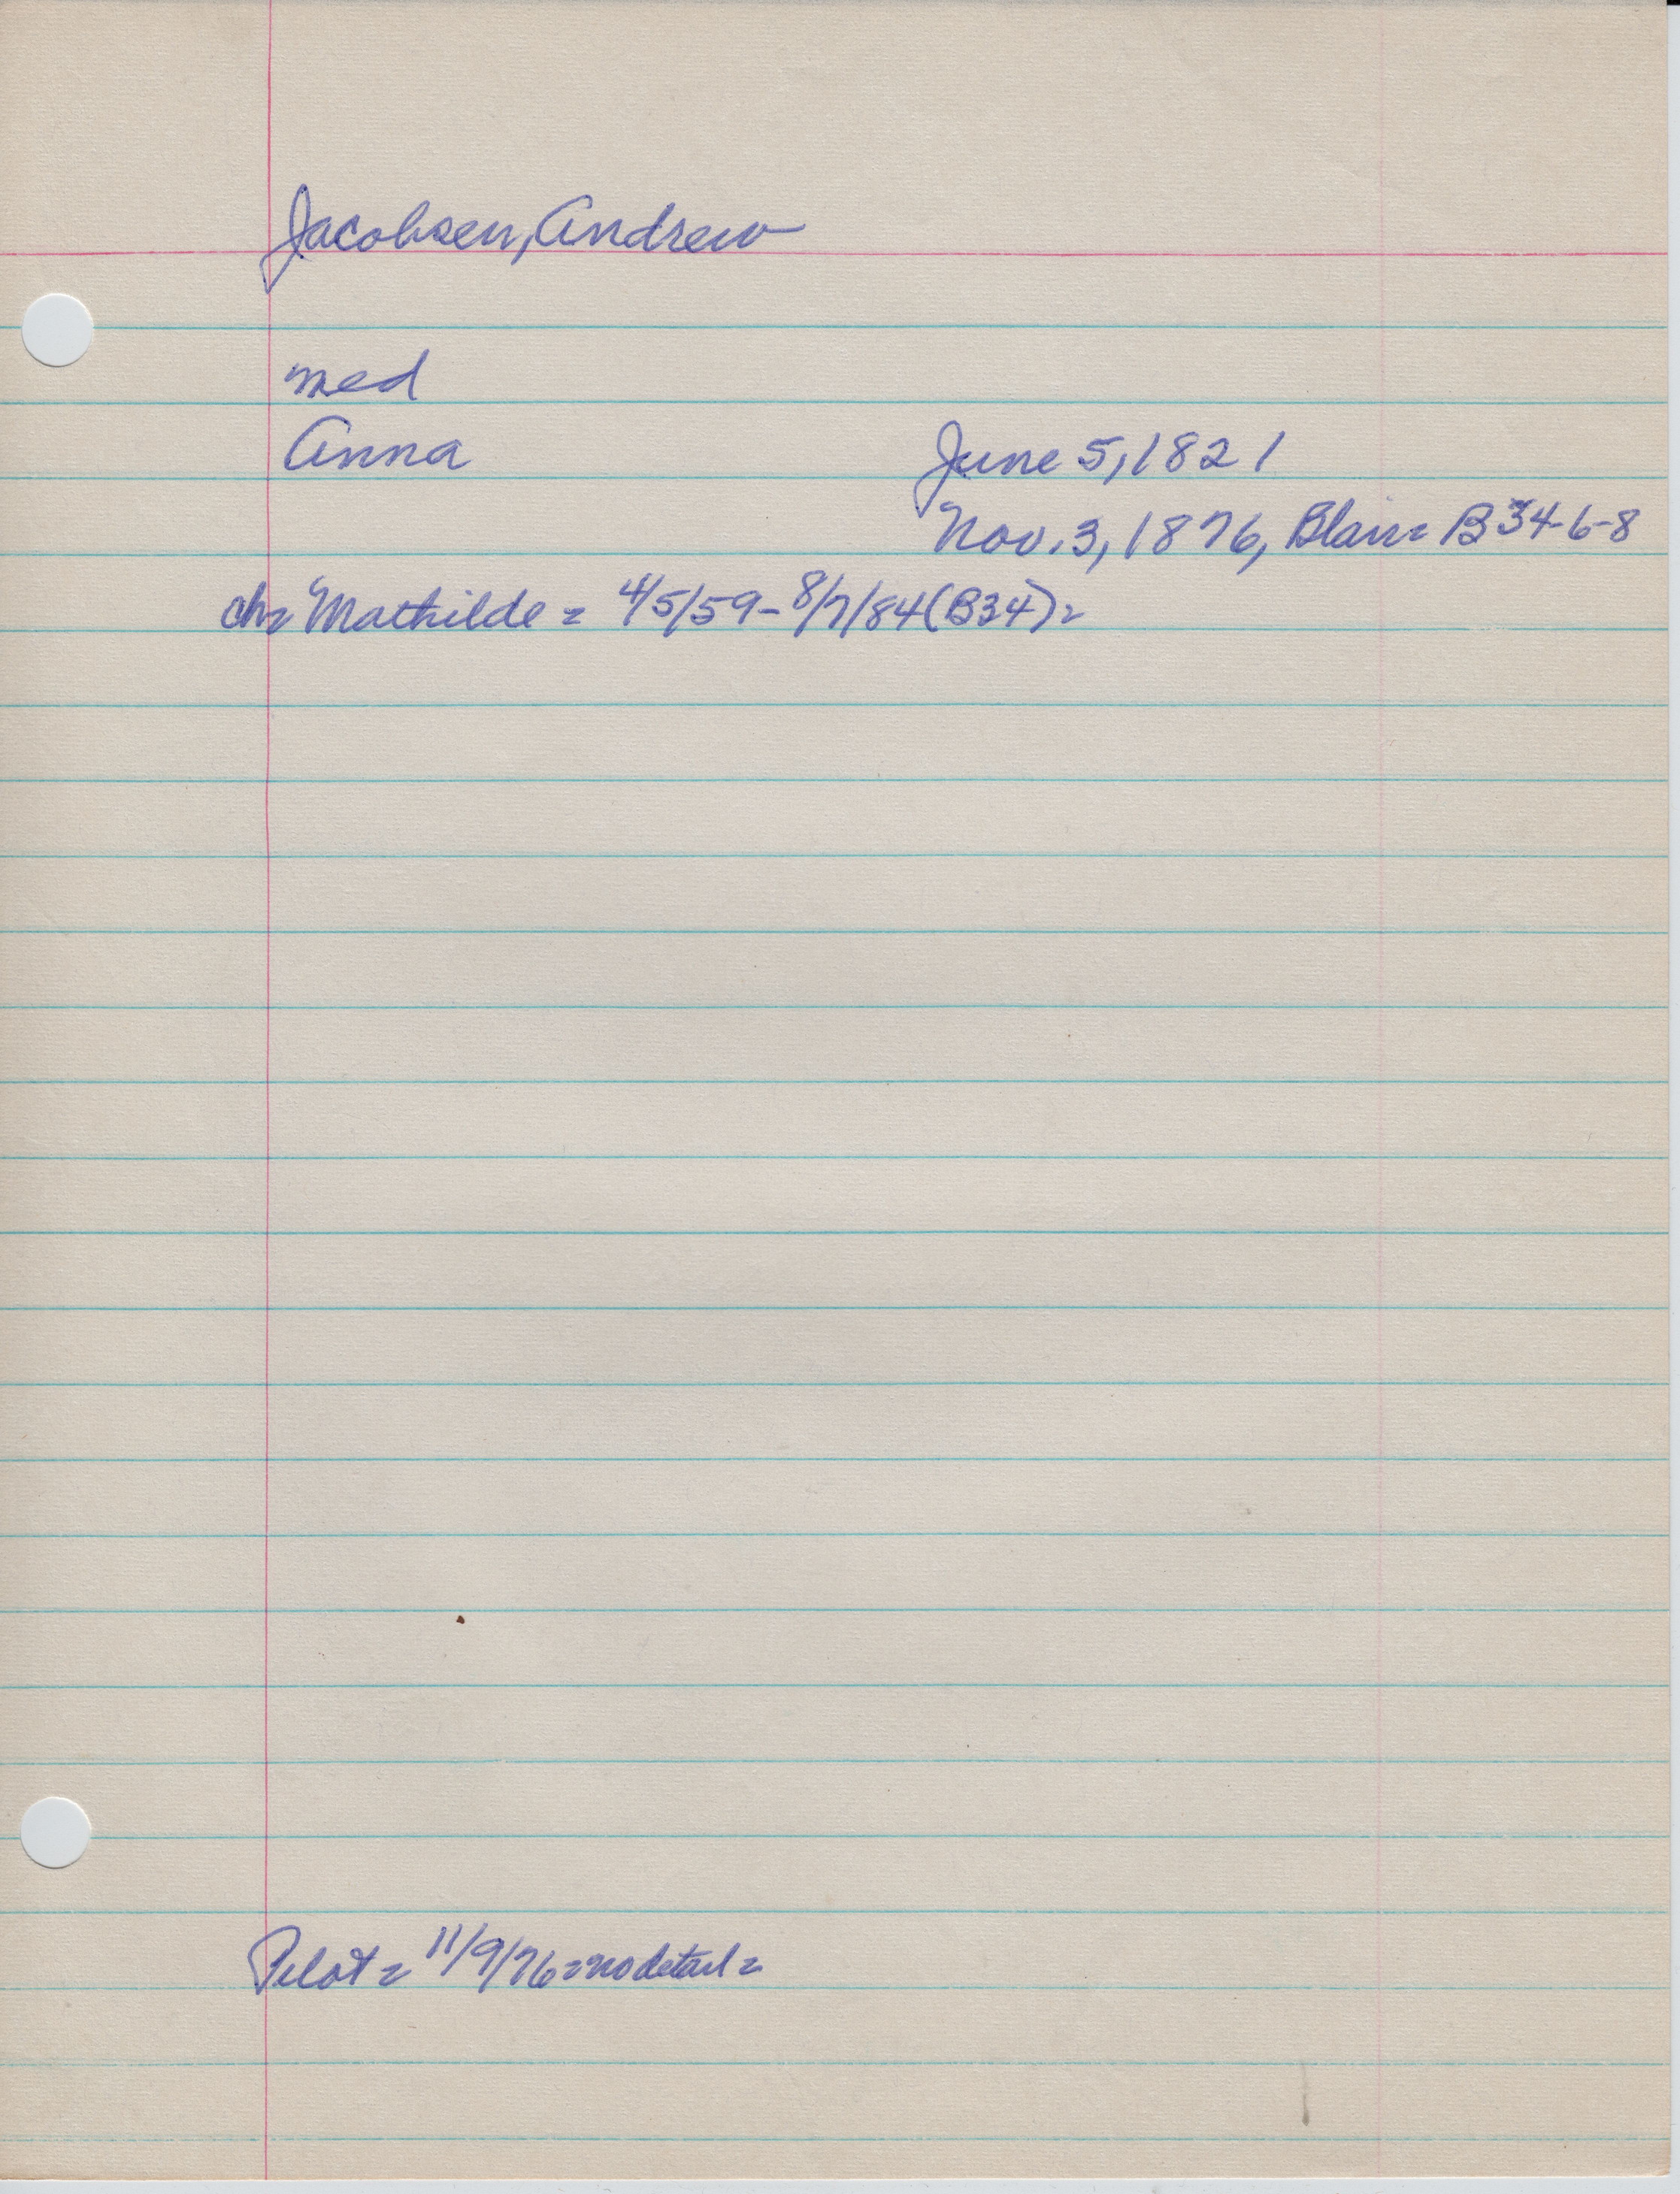 Jacobsen, Andrew
med
Anna June 5, 1821
Nov. 3, 1876, Blair= B34-6-8
ch= Mathilde = 4/5/59-8/7/84 (B34)=
Pilot = 11/9/76=no detail=